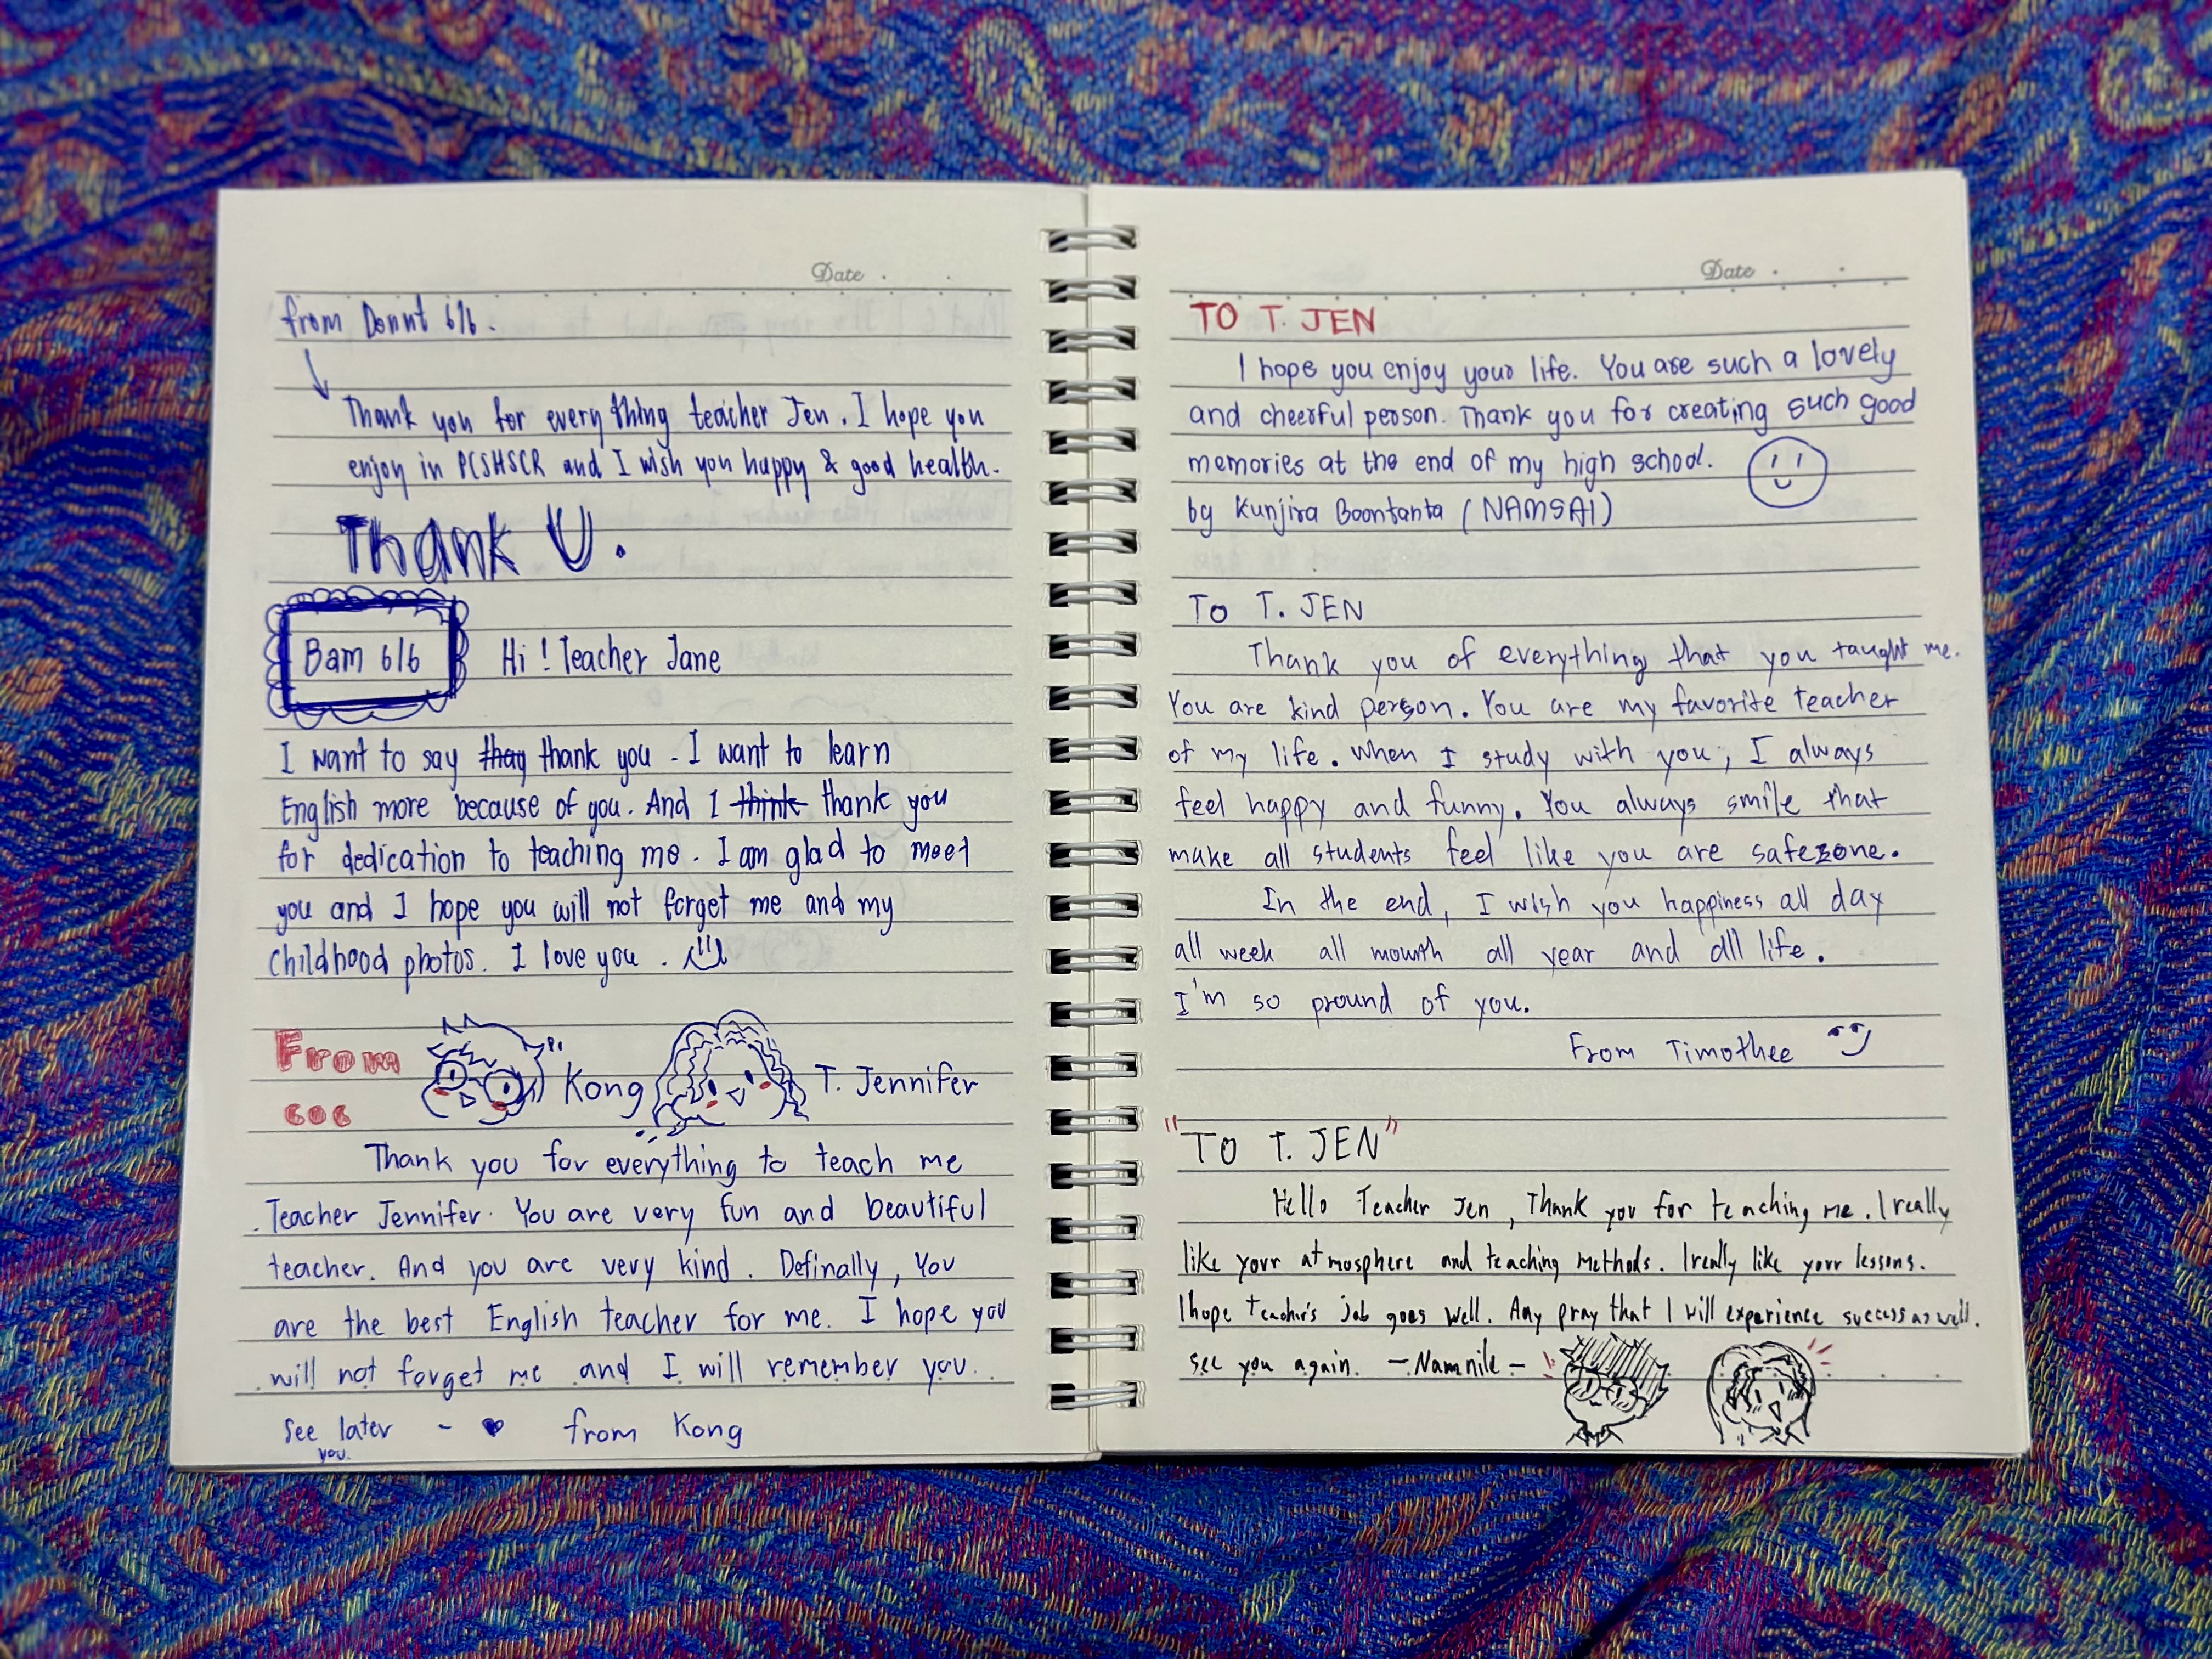 Date
from Donut 6/6.
Thank you for every thing teacher Jen. I hope you
enjoy in PCSHSCR and I wish you happy & good health.
Thank U.
Bam 6/6
Hi! Teacher Jane
I want to say thay thank you. I want to learn
English more because of you. And I think thank you
for dedication to teaching me. I am glad to meet
you and I hope you will not forget me and my
childhood photos. I love you.
From
Kong
T. Jennifer
606
Thank you for everything to teach me
Teacher Jennifer. You are very fun and beautiful
teacher. And you are very kind. Definally, You
are the best English teacher for me. I hope you
will not forget me and I will remember you.
see later - from Kong
you.
Date
TO T. JEN
I hope you enjoy your life. You are such a lovely
and cheerful person. Thank you for creating such good
memories at the end of my high school.
by Kunjira Boontanta (NAMSAI)
TO T. JEN
Thank you of everything that you taught me.
You are kind person. You are my favorite teacher
of my life. When I study with you, I always
feel happy and funny. You always smile that
make all students feel like you are safezone.
In the end, I wish you happiness all day
all week all mounth all year and all life.
I'm so pround of you.
From Timothee
"TO T. JEN"
Hello Teacher Jen, Thank you for teaching me. I really
like your atmosphere and teaching methods. I really like your lessons.
I hope teacher's job goes well. Any pray that I will experience success as well.
see you again. -Namnile-